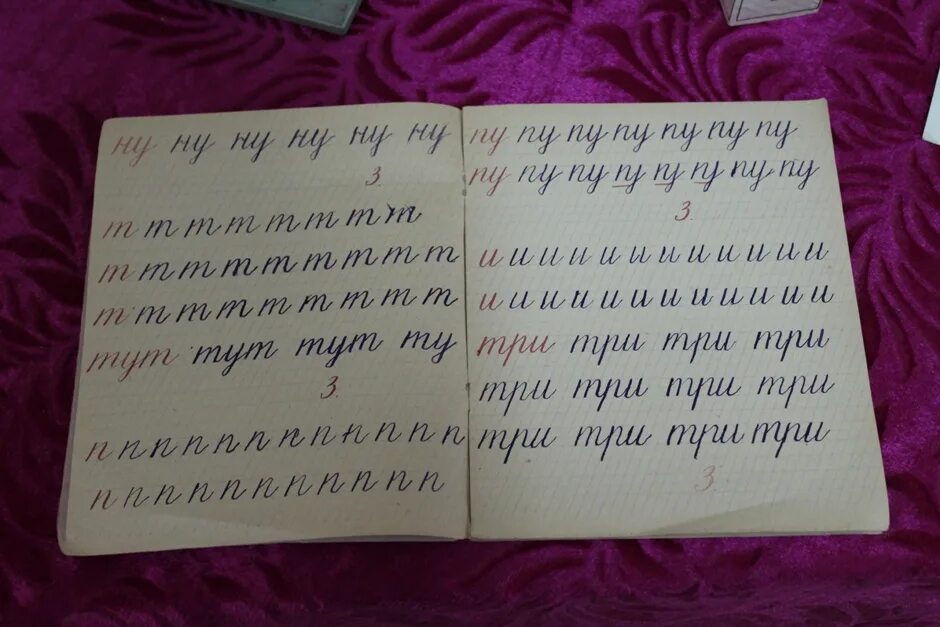 ну ну ну ну ну ну
3.
т т т т т т т т
т т т т т т т т т
т т т т т т т т т
тут тут тут ту
3.
п п п п п п п п п п п п
п п п п п п п п п п п
пу пу пу пу пу пу пу
пу пу пу пу пу пу пу пу
3.
и и и и и и и и и и и и
и и и и и и и и и и и и
три три три три
три три три три
три три три три
3.